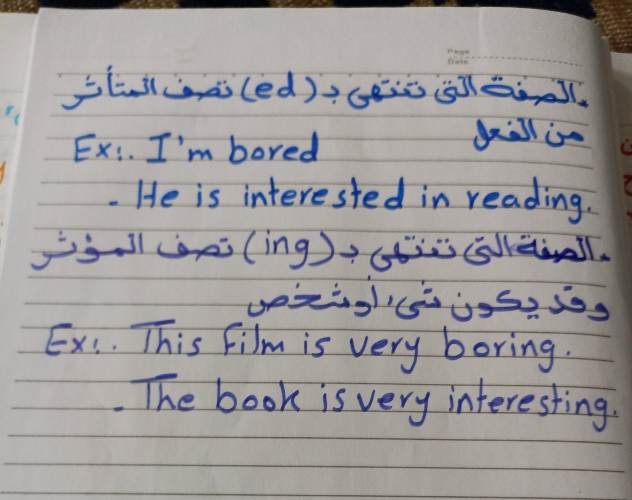 Page
Date
.الصفة التى تنتهى بـ (ed) تصف المتأثر
من الفعل
Ex:. I'm bored
- He is interested in reading.
.الصفة التى تنتهى بـ (ing) تصف المؤثر
وقد يكون شىء أو شخص
Ex:. This film is very boring.
- The book is very interesting.